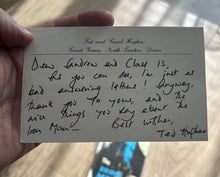 Ted and Carol Hughes,
Court Green, North Tawton, Devon
Dear Andrew and Class 15,
As you can see, I'm just as
bad answering letters! Anyway,
thank you for yours, and the
nice things you say about the
Iron Man —
Best wishes,
Ted Hughes